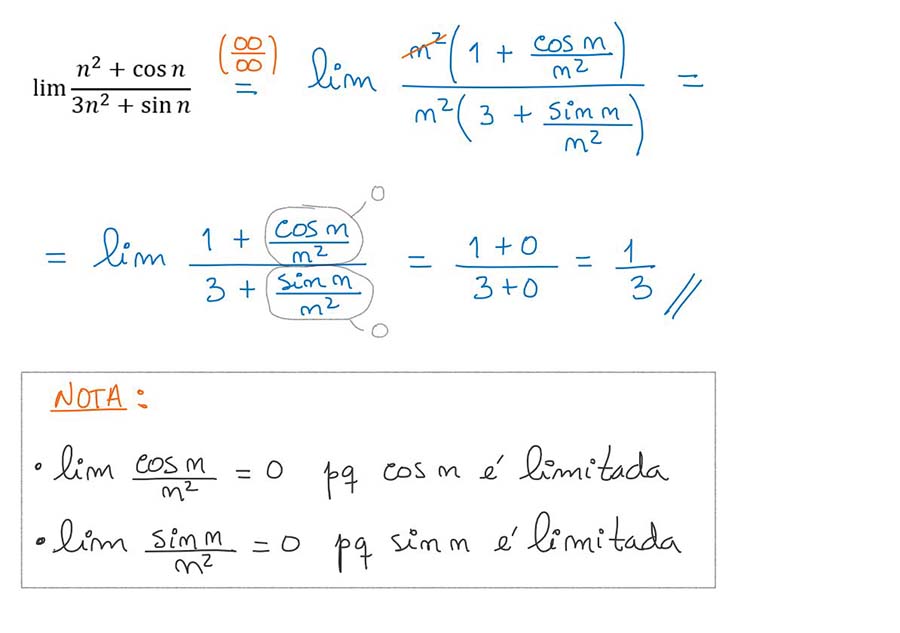 lim (n² + cos n)/(3n² + sin n) (∞/∞) = lim (n²(1 + cos n/n²))/(n²(3 + sin n/n²)) =
= lim (1 + cos n/n²)/(3 + sin n/n²) = (1+0)/(3+0) = 1/3 //
0
0
NOTA:
• lim cos n/n² = 0 pq cos n é limitada
• lim sin n/n² = 0 pq sin n é limitada